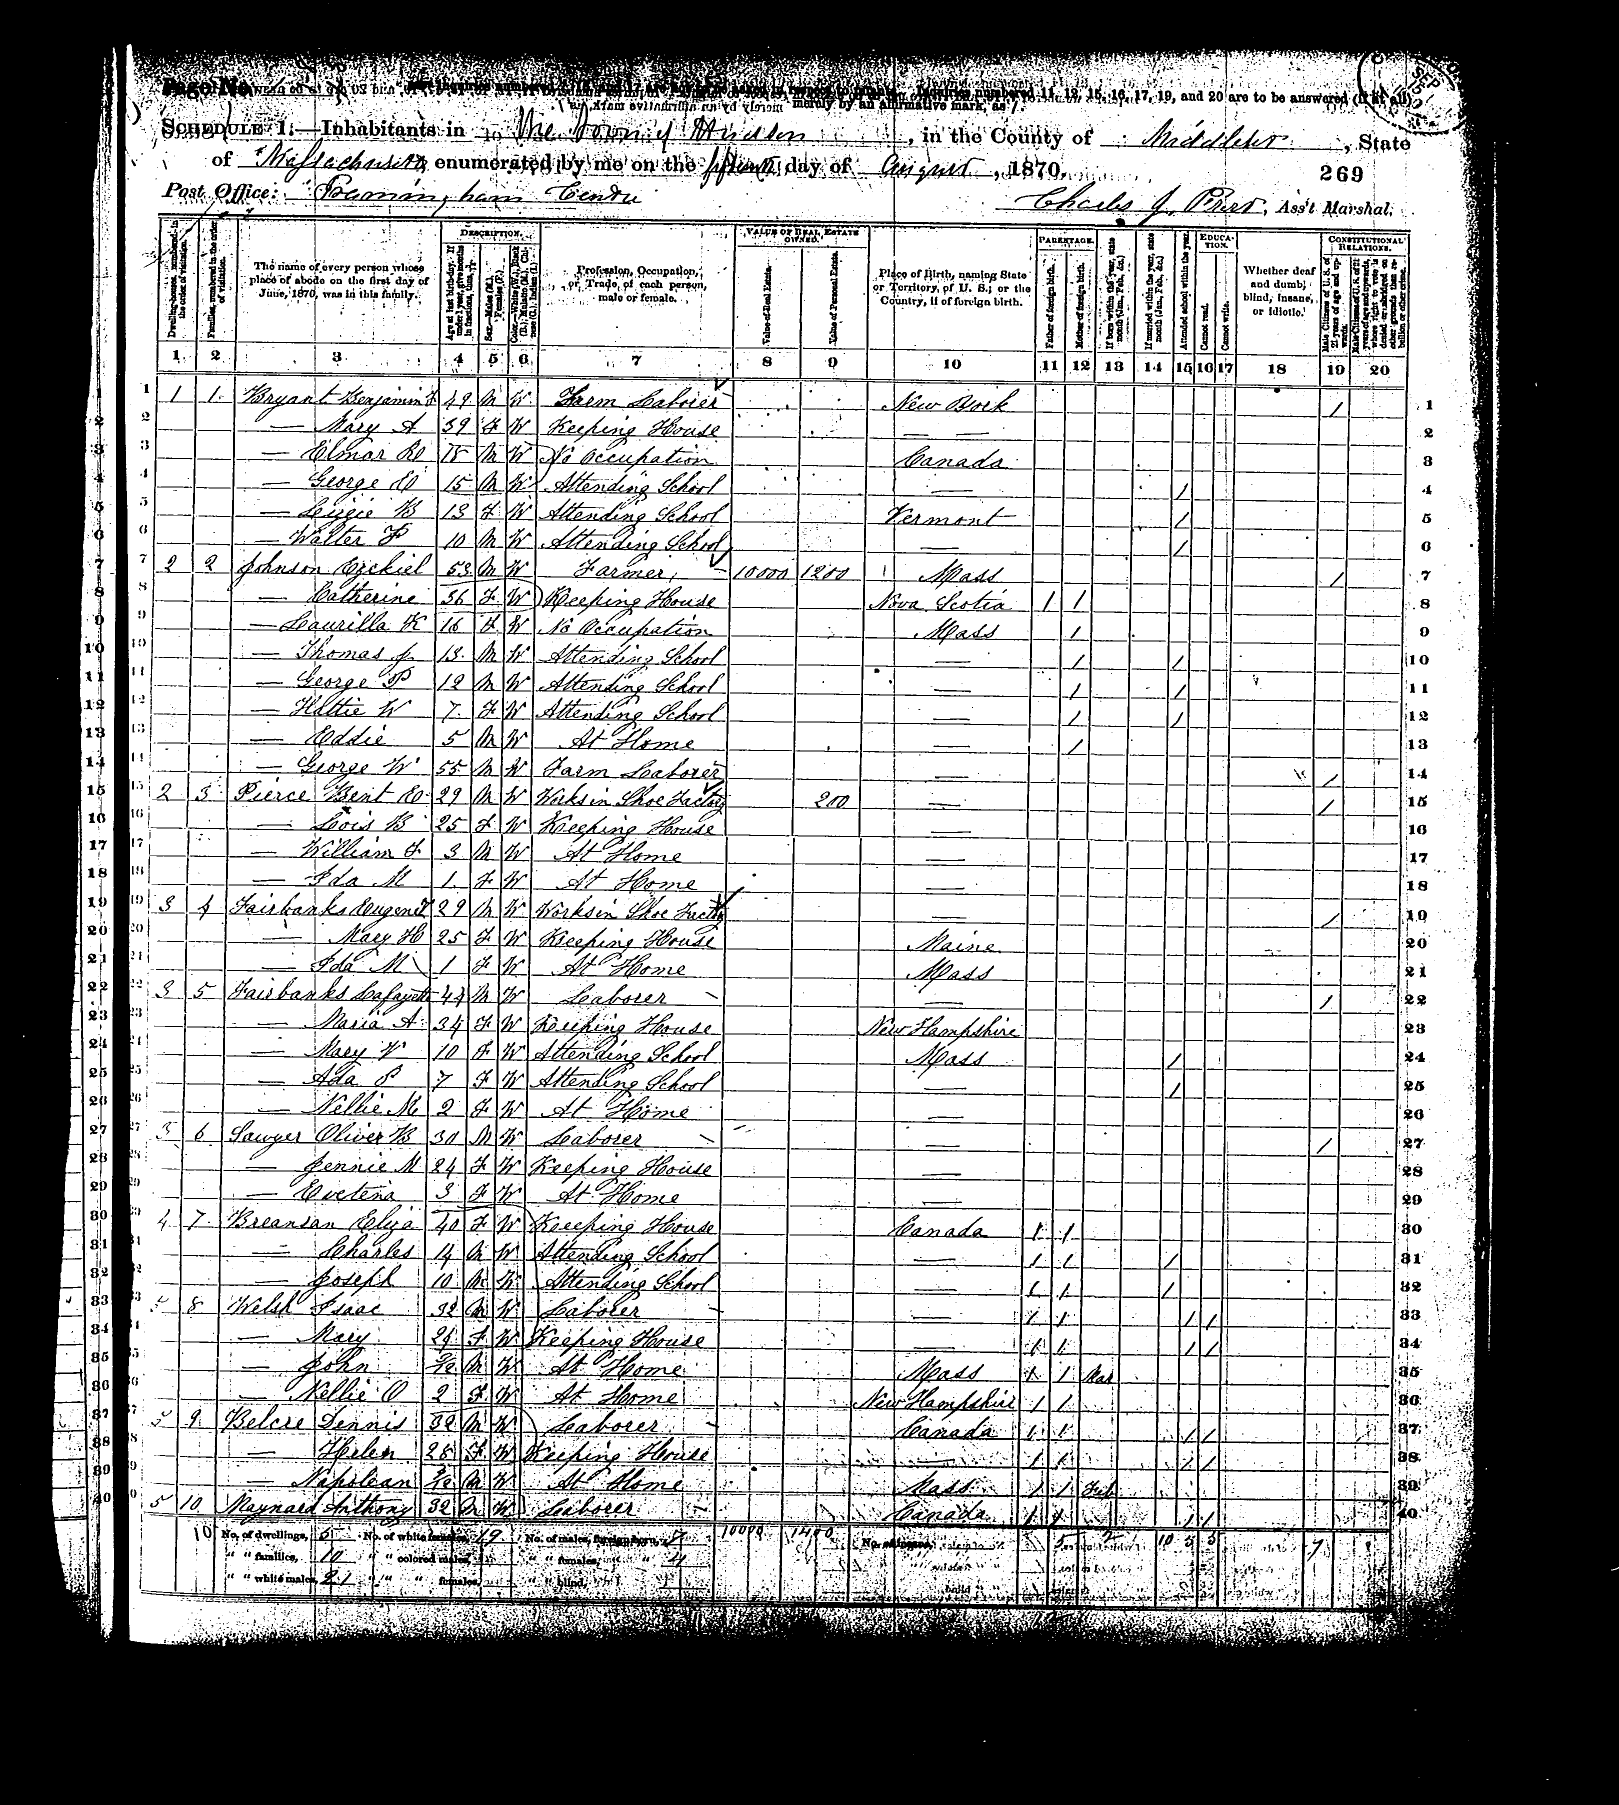 Page No.
SCHEDULE 1.—Inhabitants in The Town of Hudson, in the County of Middlesex, State
of Massachusetts, enumerated by me on the day of August, 1870.
269
Post Office: Framingham Centre
Charles J., Ass't Marshal.
The name of every person whose place of abode on the first day of June, 1870, was in this family.
DESCRIPTION.
Profession, Occupation, or Trade of each person, male or female.
VALUE OF REAL ESTATE OWNED.
Value of Real Estate.
Value of Personal Estate.
Place of Birth, naming State or Territory, of U. S.; or the Country, if of foreign birth.
PARENTAGE.
Father of foreign birth.
Mother of foreign birth.
Attended school within the year.
EDUCATION.
Cannot read.
Cannot write.
Whether deaf and dumb, blind, insane, or idiotic.
CONSTITUTIONAL RELATIONS.
1 2 3 4 5 6 7 8 9 10 11 12 13 14 15 16 17 18 19 20
1 1 1 Bryant Benjamin 49 M W Farm Laborer New York / 1
2 — Mary A 39 F W Keeping House — — 2
3 — Elmor 18 M W No Occupation Canada 3
4 — George 15 M W Attending School — / 4
5 — Lizzie B 13 F W Attending School Vermont / 5
6 — Walter F 10 M W Attending School — / 6
7 2 2 Johnson Ezekiel 53 M W Farmer 10000 1200 Mass / 7
8 — Catherine 36 F W Keeping House Nova Scotia / / 8
9 — Laurilla K 16 F W No Occupation Mass / 9
10 — Thomas J 13 M W Attending School — / / 10
11 — George P 12 M W Attending School — / / 11
12 — Hattie W 7 F W Attending School — / / 12
13 — Eddie 5 M W At Home — / 13
14 — George W 55 M W Farm Laborer — / 14
15 2 3 Pierce Bent 29 M W Works in Shoe Factory 200 — / 15
16 — Lois B 25 F W Keeping House — 16
17 — William F 3 M W At Home — 17
18 — Ida M 1 F W At Home — 18
19 3 4 Fairbanks Eugene 29 M W Works in Shoe Factory — / 19
20 — Mary H 25 F W Keeping House Maine 20
21 — Ida M 1 F W At Home Mass 21
22 3 5 Fairbanks Lafayette 44 M W Laborer — / 22
23 — Maria A 34 F W Keeping House New Hampshire 23
24 — Mary V 10 F W Attending School Mass / 24
25 — Ada P 7 F W Attending School — / 25
26 — Nellie M 2 F W At Home — 26
27 3 6 Sawyer Oliver B 30 M W Laborer — / 27
28 — Jennie M 24 F W Keeping House — 28
29 — Evetena 3 F W At Home — 29
30 4 7 Breansan Eliza 40 F W Keeping House Canada / / 30
31 — Charles 14 M W Attending School — / / / 31
32 — Joseph 10 M W Attending School — / / / 32
33 5 8 Welsh Isaac 32 M W Laborer — / / / / 33
34 — Mary 24 F W Keeping House — / / / / 34
35 — John M W At Home Mass / / Mar 35
36 — Nellie O 2 F W At Home New Hampshire / / 36
37 5 9 Belcre Dennis 32 M W Laborer Canada / / / / 37
38 — Helen 28 F W Keeping House — / / / / 38
39 — Napolean M W At Home Mass / / Feb 39
40 5 10 Maynard Anthony 32 M W Laborer Canada / / / / 40
No. of dwellings, 5 No. of white females, 19 No. of males, foreign born, 7 10000 1400 5 2 10 5 5 7
" " families, 10 " " colored males, " " females, " " 4
" " white males, 21 " " " females, " " blind,